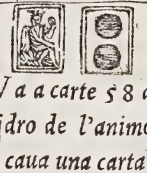 Va a carte 58 a
idro de l'animo
caua una carta